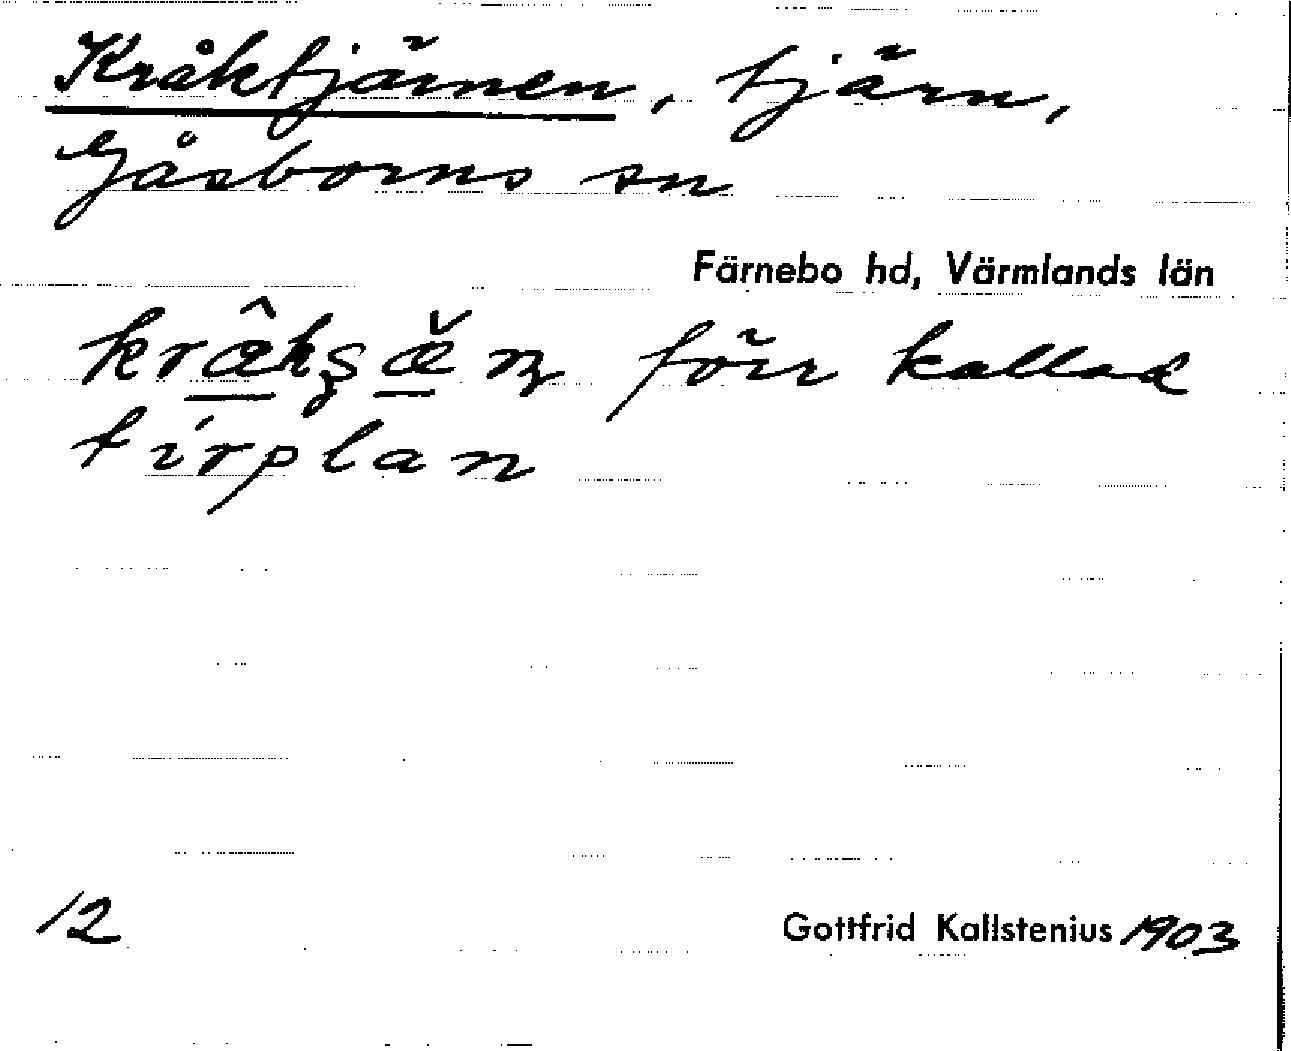 Kråktjärnen, tjärn,
Gåsborns sn
Färnebo hd, Värmlands län
förr kallad
tirplan
12
Gottfrid Kallstenius 1903